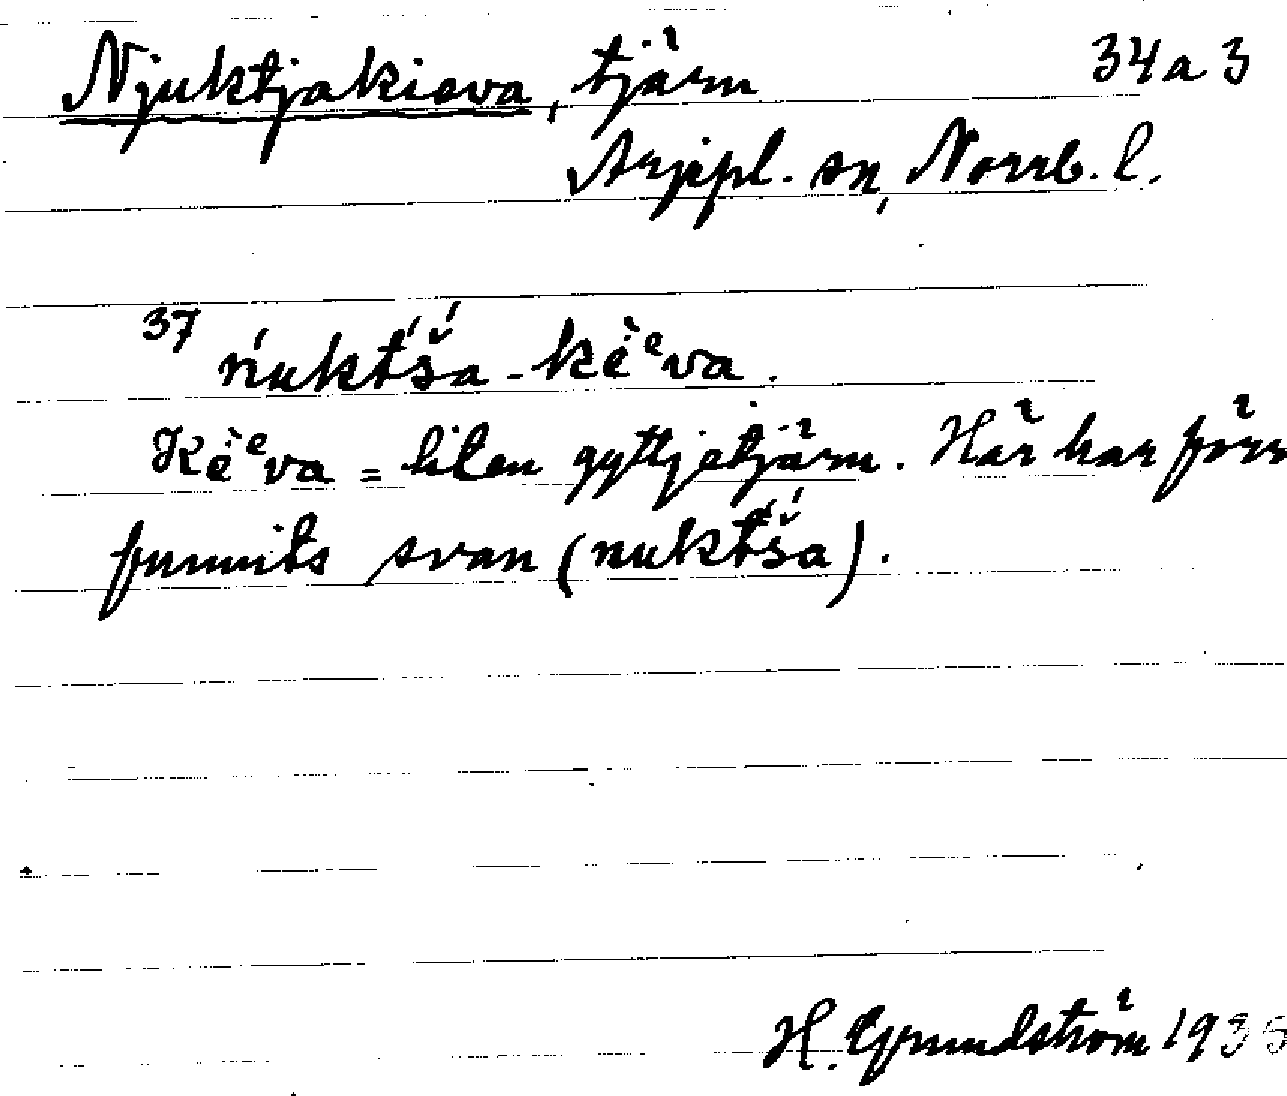 Njuktjakieva, tjärn 34a3
Arjepl. sn, Norrb. l.
37 ńuktšá-kèᵉva.
Kèᵉva = liten gyttjetjärn. Här har förr
funnits svan (nuktšá).
H. Grundström 1935